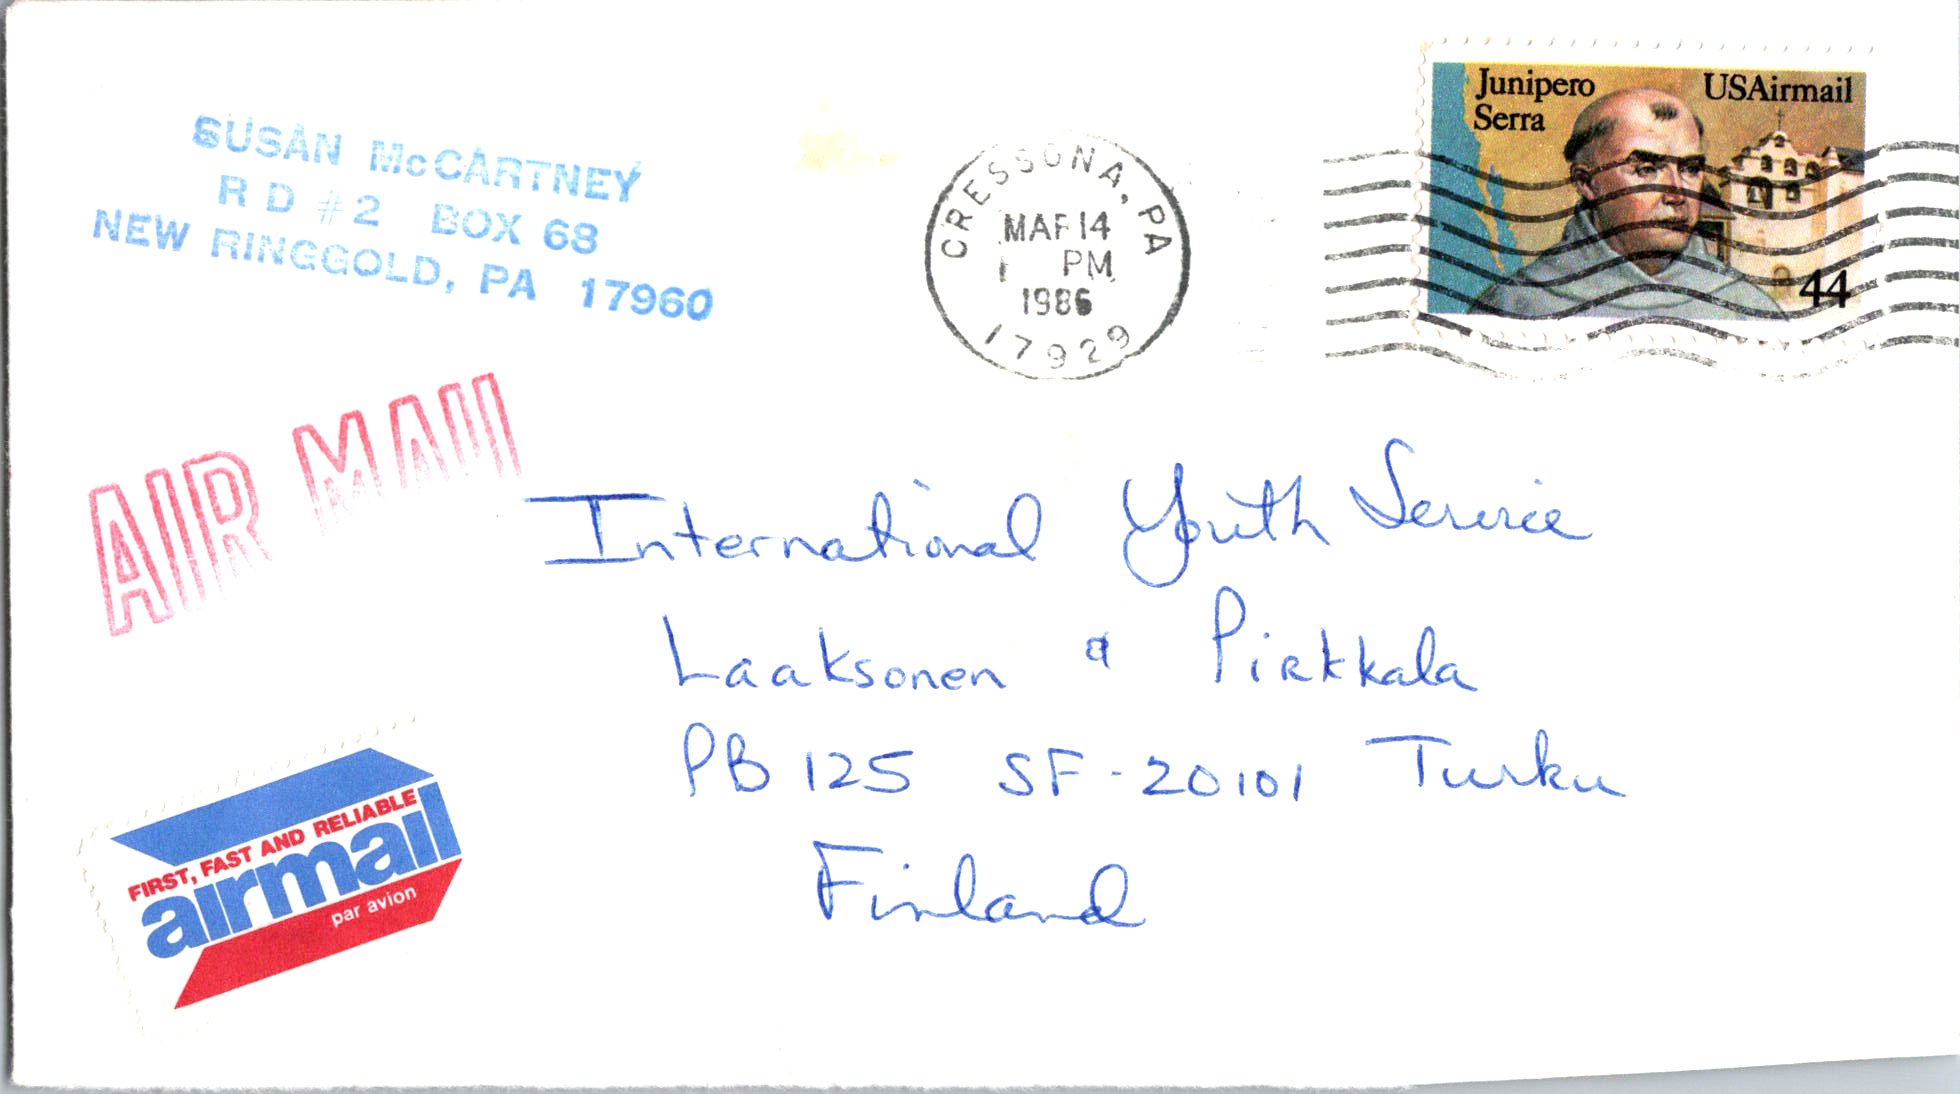 SUSAN McCARTNEY
R D #2 BOX 68
NEW RINGGOLD, PA 17960
CRESSONA, PA
MAR 14
PM
1986
17929
Junipero
Serra
USAirmail
44
AIR MAIL
International Youth Service
Laaksonen & Pirkkala
PB 125 SF-20101 Turku
Finland
FIRST, FAST AND RELIABLE
airmail
par avion